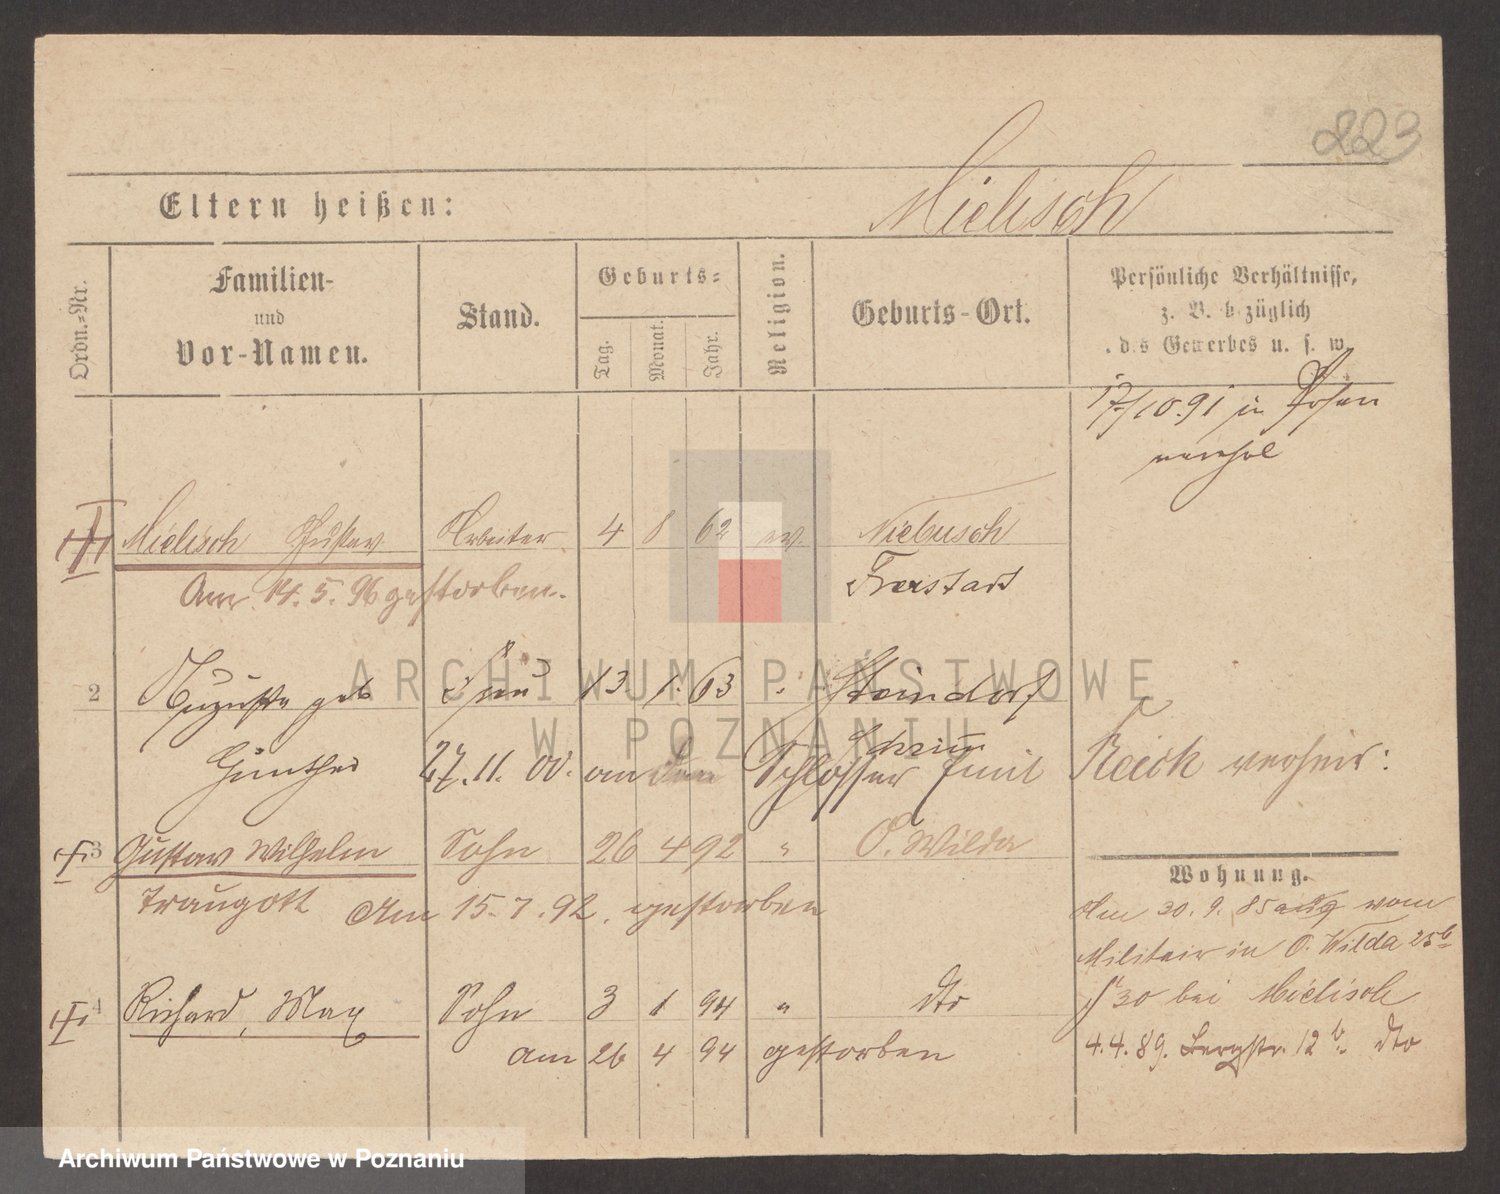 223
Eltern heißen:
Mielisch
Ordn.-Nr.
Familien-
und
Vor-Namen.
Stand.
Geburts-
Tag.
Monat.
Jahr.
Religion.
Geburts-Ort.
Persönliche Verhältnisse,
z. B. bezüglich
des Gewerbes u. s. w.
17/10.91 in Posen
Mielisch Gustav Arbeiter 4 8 62 ev. Niebusch
Am 14. 5. 96 gestorben. Freistadt
2 Auguste geb Frau 13 1. 63 " Steindorf
Günther 27. 11. 00. an den Schlosser Emil Reick verheir:
3 Gustav Wilhelm Sohn 26 4 92 " O. Wilda
Traugott Am 15. 7. 92. gestorben
4 Richard, Max Sohn 3 1 94 " dto
am 26 4 94 gestorben
Wohnung.
Am 30. 9. 85 vom
Militair in O. Wilda 25b
30 bei Mielisch
4.4.89. Bergstr. 12b. dto
ARCHIWUM PAŃSTWOWE
W POZNANIU
Archiwum Państwowe w Poznaniu